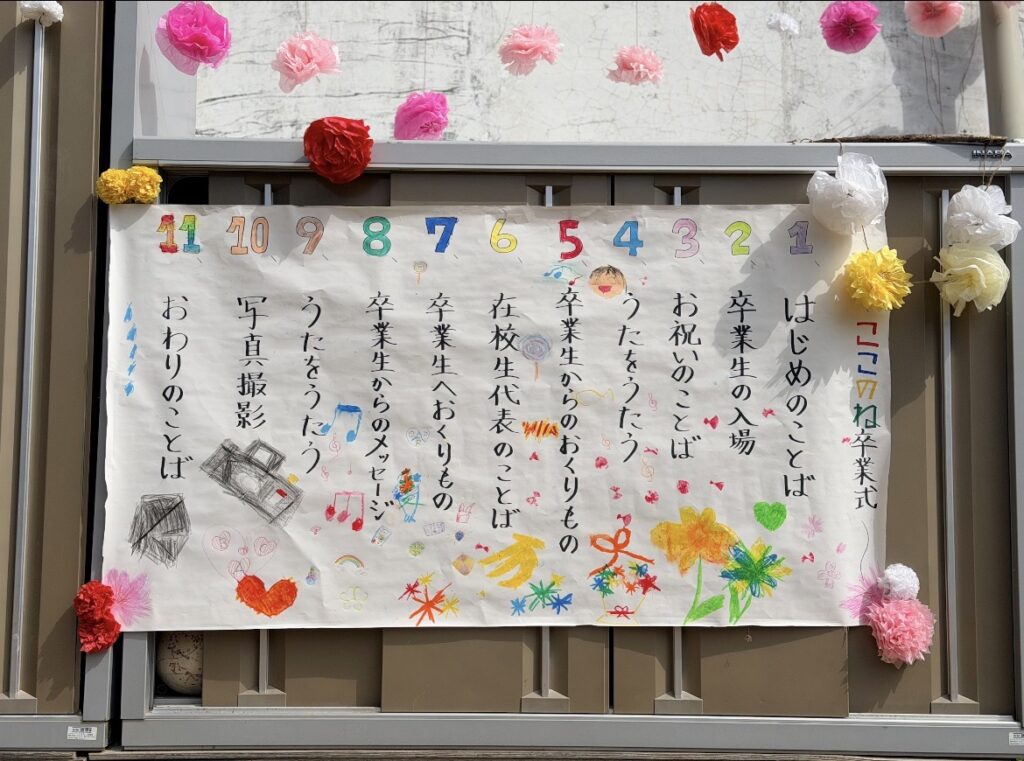 ここのね卒業式
1 はじめのことば
2 卒業生の入場
3 お祝いのことば
4 うたをうたう
5 卒業生からのおくりもの
6 在校生代表のことば
7 卒業生へおくりもの
8 卒業生からのメッセージ
9 うたをうたう
10 写真撮影
11 おわりのことば
INABA